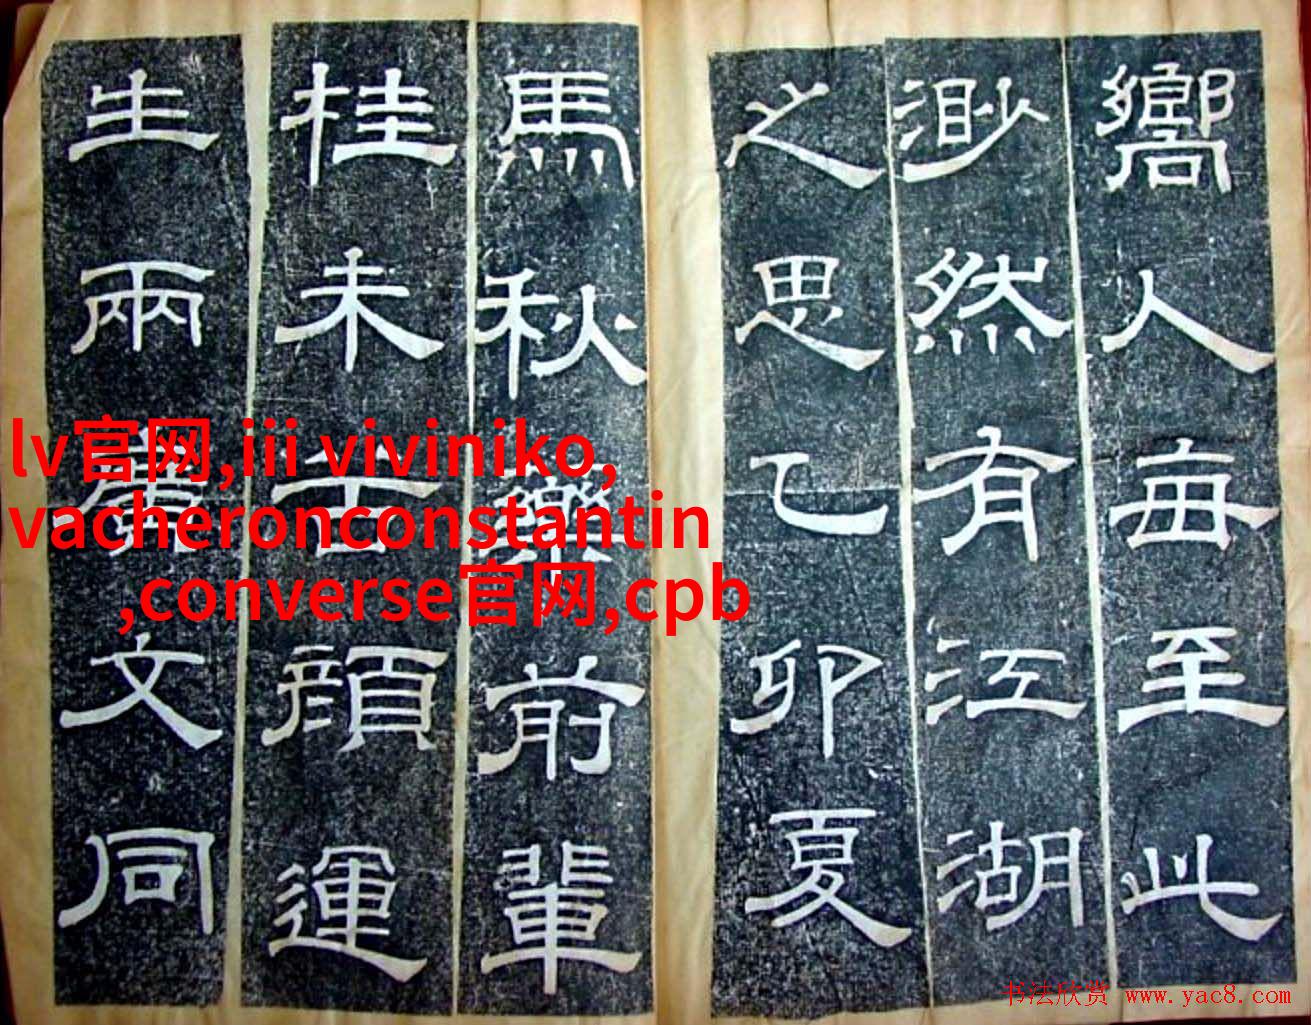 嚮人每至此
渺然有江湖
之思乙卯夏
馬秋前輩
桂未顔運
生兩文同
lv官网,iii viviniko,
vacheronconstantin
,converse官网,cpb
书法欣赏 www.yac8.com